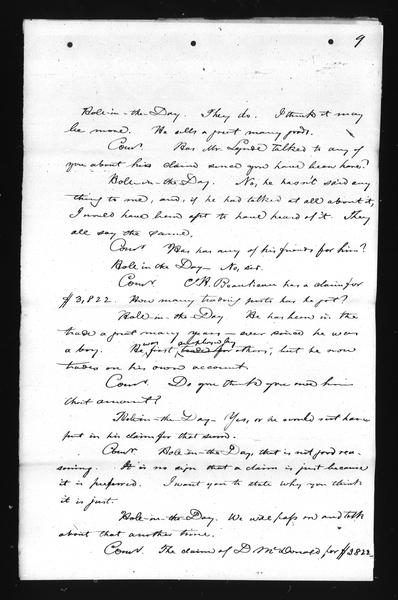 9
Hole-in-the-Day. They do. I think it may
be more. He sells a great many goods.
Comr. Has Mr. Lynde talked to any of
you about his claim since you have been here?
Hole-in-the-Day. No, he hasn't said any
thing to me, and, if he had talked at all about it,
I would have been apt to have heard of it. They
all say the same.
Comr. Has any of his friends for him?
Hole in the Day - No, sir.
Comr. C.H. Beaulieau has a claim for
$3,822. How many trading posts has he got?
Hole-in-the Day He has been in the
trade a great many years - ever since he was
a boy. He was first employed by traded for others, but he now
trades on his own account.
Comr. Do you think you owe him
that amount?
Hole-in-the-Day - Yes, or he would not have
put in his claim for that sum.
Comr. Hole-in-the-Day, that is not good rea-
soning. It is no sign that a claim is just because
it is preferred. I want you to state why you think
it is just.
Hole-in-the-Day. We will pass on and talk
about that another time.
Comr. The claim of D McDonald for $3822